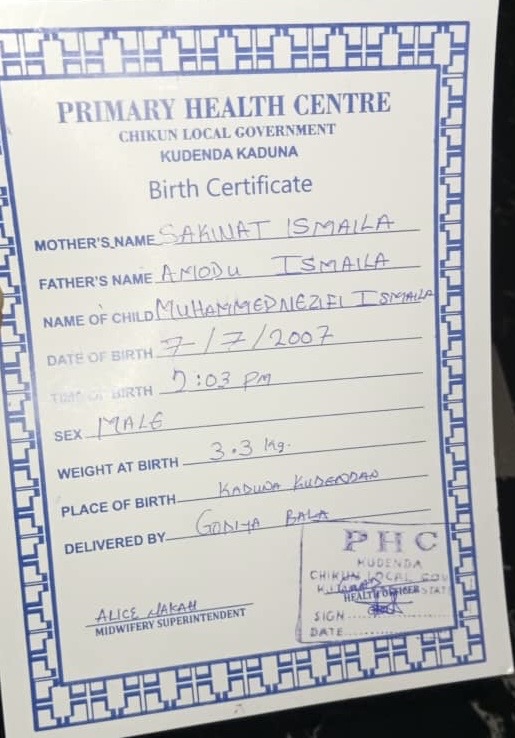 PRIMARY HEALTH CENTRE
CHIKUN LOCAL GOVERNMENT
KUDENDA KADUNA
Birth Certificate
MOTHER'S NAME SAKINAT ISMAILA
FATHER'S NAME AMODU ISMAILA
NAME OF CHILD MUHAMMED NEZIFI ISMAILA
DATE OF BIRTH 7/7/2007
TIME OF BIRTH 7:03 PM
SEX MALE
WEIGHT AT BIRTH 3.3 kg.
PLACE OF BIRTH KADUNA KUDENDAN
DELIVERED BY GONIYA BALA
PHC
KUDENDA
CHIKUN LOCAL GOV
HEALTH OFFICER STATE
SIGN
DATE
ALICE JAKAH
MIDWIFERY SUPERINTENDENT